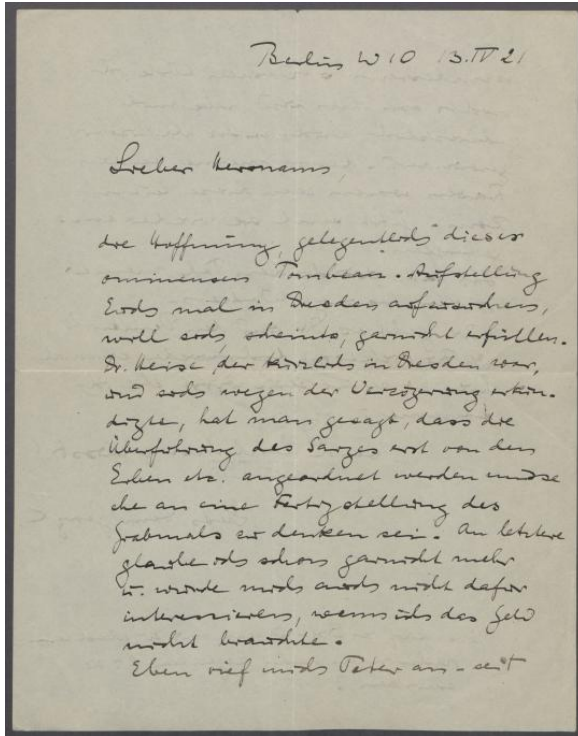 Berlin W 10 13.IV 21
Lieber Hermann,
die Hoffnung, gelegentlich dieser
ominensen Tombeau-Aufstellung
Euch mal in Dresden
will sich, scheints, garnicht erfüllen.
Dr. Heise, der kürzlich in Dresden war,
und sich wegen der Verzögerung erkun-
digte, hat man gesagt, dass die
Überführung des Sarges erst von den
Erben etc. angeordnet werden müsse
ehe an eine Fertigstellung des
Grabmals zu denken sei. An letztere
glaube ich schon garnicht mehr
u. würde mich auch nicht dafür
interessieren, wenn ich das Geld
nicht brauchte.
Eben rief mich Peter an - seit